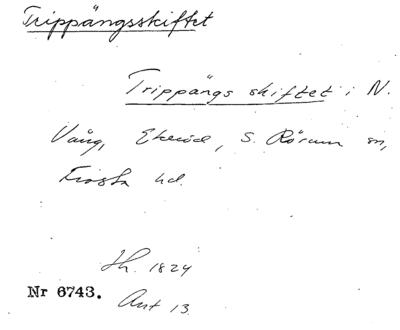 Trippängsskiftet
Trippängs skiftet i N.
Vång, Ekeröd, S. Rörum sn,
Frosta hd.
Jh. 1824
Nr 6743.
Akt 13